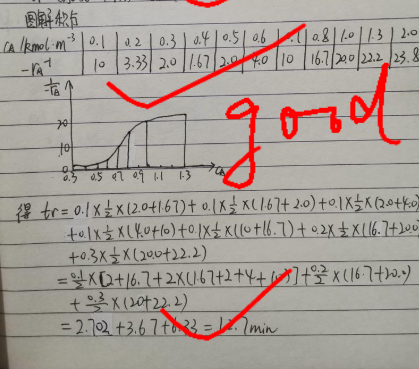 图解积分
CA/kmol·m⁻³ 0.1 0.2 0.3 0.4 0.5 0.6 0.8 1.0 1.3 2.0
-rA⁻¹ 10 3.33 2.0 1.67 2.0 4.0 10 16.7 20.0 22.2 23.8
good
20
10
0
0.3 0.5 0.7 0.9 1.1 1.3 CA
得 tr=0.1×½×(2.0+1.67)+0.1×½×(1.67+2.0)+0.1×½×(2.0+4.0)
+0.1×½×(4.0+10)+0.1×½×(10+16.7)+0.2×½×(16.7+20.0)
+0.3×½×(20.0+22.2)
=0.1/2×[2+16.7+2×(1.67+2+4+10)]+0.2/2×(16.7+20.0)
+0.3/2×(20+22.2)
=2.702+3.67+6.33=12.7min